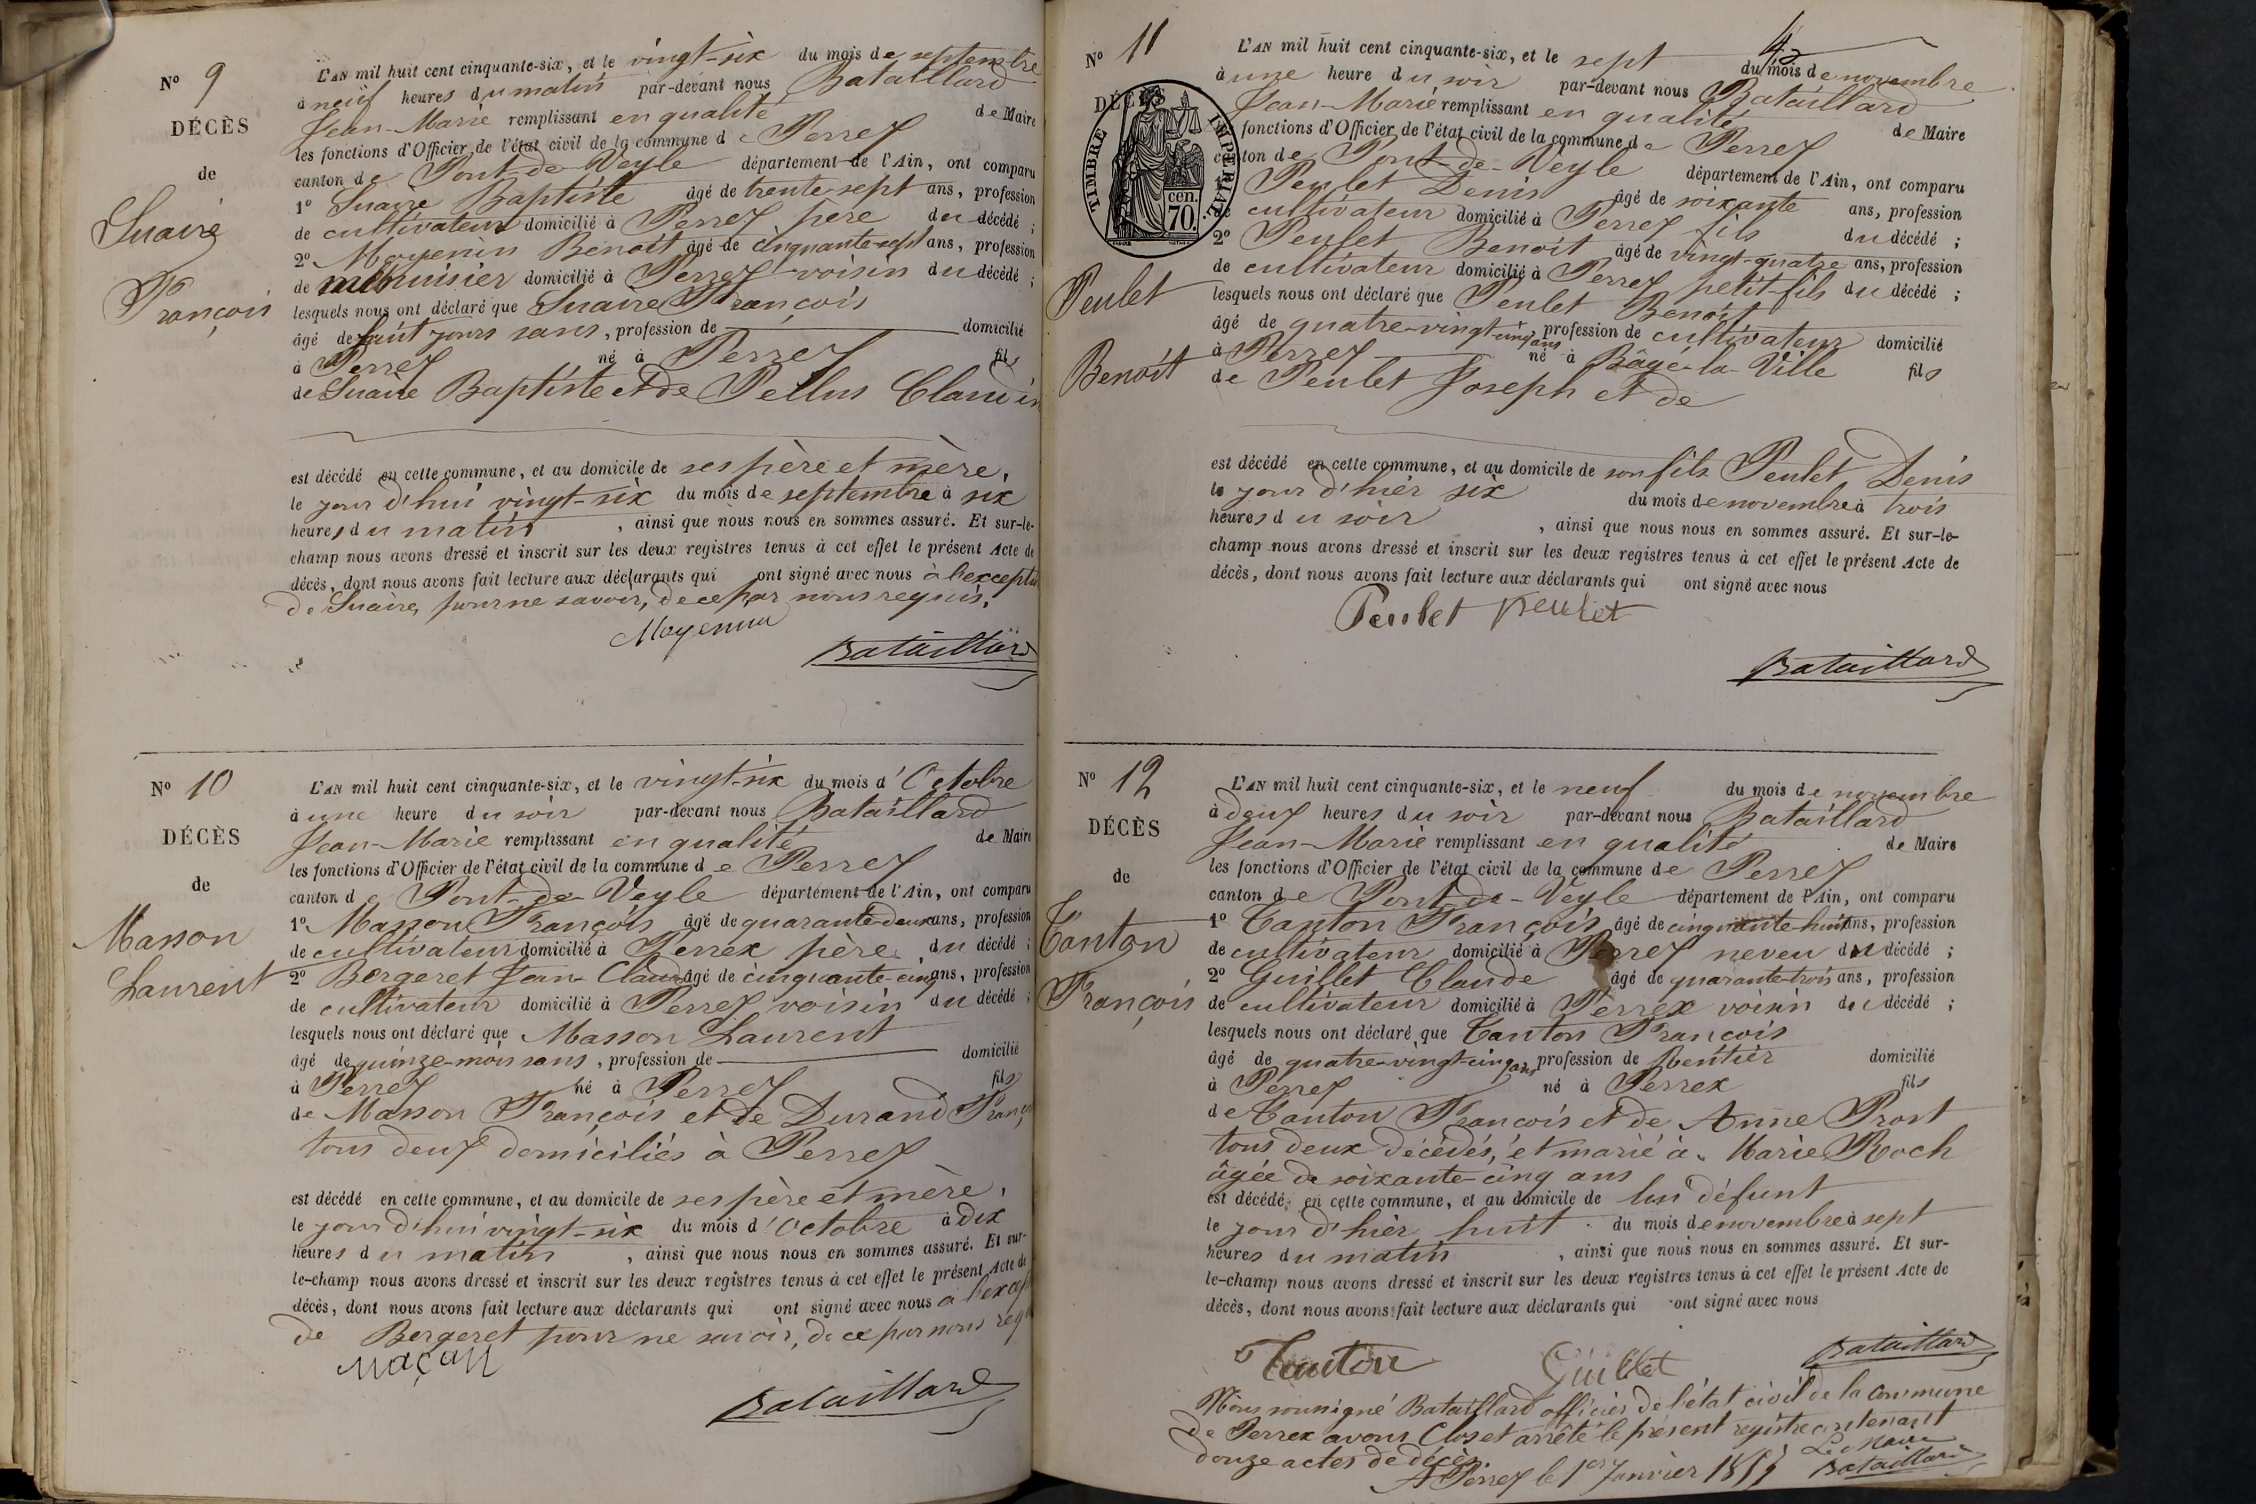 N° 9
DÉCÈS
de
Suaire
François
L'AN mil huit cent cinquante-six, et le vingt-six du mois de septembre
à neuf heures du matin par-devant nous Bataillard
Jean-Marie remplissant en qualité de Maire
les fonctions d'Officier de l'état civil de la commune de Perrex
canton de Pont-de-Veyle département de l'Ain, ont comparu
1° Suaire Baptiste âgé de trente-sept ans, profession
de cultivateur domicilié à Perrex père du décédé ;
2° Moyenin Benoit âgé de cinquante-sept ans, profession
de menuisier domicilié à Perrex voisin du décédé ;
lesquels nous ont déclaré que Suaire François
âgé de huit jours sans, profession de domicilié
à Perrex né à Perrex fils
de Suaire Baptiste et de Pellus Claudin
est décédé en cette commune, et au domicile de ses père et mère,
le jour d'hui vingt-six du mois de septembre à six
heures du matin, ainsi que nous nous en sommes assuré. Et sur-le-
champ nous avons dressé et inscrit sur les deux registres tenus à cet effet le présent Acte de
décès, dont nous avons fait lecture aux déclarants qui ont signé avec nous à l'exceptio
de Suaire, pour ne savoir, de ce par nous requis.
Bataillard
N° 10
DÉCÈS
de
Masson
Laurent
L'AN mil huit cent cinquante-six, et le vingt-six du mois d'Octobre
à une heure du soir par-devant nous Bataillard
Jean-Marie remplissant en qualité de Maire
les fonctions d'Officier de l'état civil de la commune de Perrex
canton de Pont-de-Veyle département de l'Ain, ont comparu
1° Masson François âgé de quarante-deux ans, profession
de cultivateur domicilié à Perrex père du décédé ;
2° Bergeret Jean-Claude âgé de cinquante-cinq ans, profession
de cultivateur domicilié à Perrex voisin du décédé ;
lesquels nous ont déclaré que Masson Laurent
âgé de quinze mois sans, profession de domicilié
à Perrex né à Perrex fils
de Masson François et de Durand Franç
tous deux domiciliés à Perrex
est décédé en cette commune, et au domicile de ses père et mère,
le jour d'hui vingt-six du mois d'Octobre à dix
heures du matin, ainsi que nous nous en sommes assuré. Et sur-
le-champ nous avons dressé et inscrit sur les deux registres tenus à cet effet le présent Acte de
décès, dont nous avons fait lecture aux déclarants qui ont signé avec nous à l'excep
de Bergeret pour ne savoir, de ce par nous requ
maçon
Bataillard
N° 11
DÉCÈS
TIMBRE IMPÉRIAL
cen.
70.
Peulet
Benoit
L'AN mil huit cent cinquante-six, et le sept du mois de novembre
à une heure du soir par-devant nous Bataillard
Jean-Marie remplissant en qualité de Maire
fonctions d'Officier de l'état civil de la commune de Perrex
canton de Pont-de-Veyle département de l'Ain, ont comparu
Peulet Denis âgé de soixante ans, profession
de cultivateur domicilié à Perrex fils du décédé ;
2° Peulet Benoit âgé de vingt-quatre ans, profession
de cultivateur domicilié à Perrex petit-fils du décédé ;
lesquels nous ont déclaré que Peulet Benoit
âgé de quatre-vingt-cinq ans, profession de cultivateur domicilié
à Perrex né à Bâgé-la-Ville fils
de Peulet Joseph et de
est décédé en cette commune, et au domicile de son fils Peulet Denis
le jour d'hier six du mois de novembre à trois
heures du soir, ainsi que nous nous en sommes assuré. Et sur-le-
champ nous avons dressé et inscrit sur les deux registres tenus à cet effet le présent Acte de
décès, dont nous avons fait lecture aux déclarants qui ont signé avec nous
Peulet peulet
Bataillard
N° 12
DÉCÈS
de
Tanton
François
L'AN mil huit cent cinquante-six, et le neuf du mois de novembre
à deux heures du soir par-devant nous Bataillard
Jean-Marie remplissant en qualité de Maire
les fonctions d'Officier de l'état civil de la commune de Perrex
canton de Pont-de-Veyle département de l'Ain, ont comparu
1° Tanton François âgé de cinquante-huit ans, profession
de cultivateur domicilié à Perrex neveu du décédé ;
2° Guillet Claude âgé de quarante-trois ans, profession
de cultivateur domicilié à Perrex voisin du décédé ;
lesquels nous ont déclaré que Tanton François
âgé de quatre-vingt-cinq ans profession de Rentier domicilié
à Perrex né à Perrex fils
de Tanton François et de Anne Prost
tous deux décédés, et marié à Marie Roch
âgée de soixante-cinq ans
est décédé en cette commune, et au domicile de lui défunt
le jour d'hier huit du mois de novembre à sept
heures du matin, ainsi que nous nous en sommes assuré. Et sur-
le-champ nous avons dressé et inscrit sur les deux registres tenus à cet effet le présent Acte de
décès, dont nous avons fait lecture aux déclarants qui ont signé avec nous
Tanton Guillet Bataillard
Nous soussigné Bataillard officier de l'état civil de la commune
de Perrex avons Clos et arrêté le présent registre contenant
douze actes de décès.
A Perrex le 1er Janvier 1857 Le Maire
Bataillard